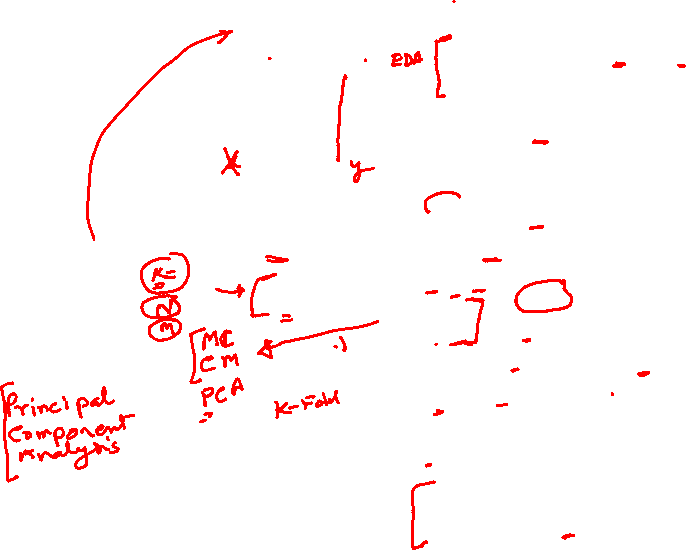 EDA
y
K=
2
3
MC
CM
PCA
K-Fold
Principal
Component
Analysis